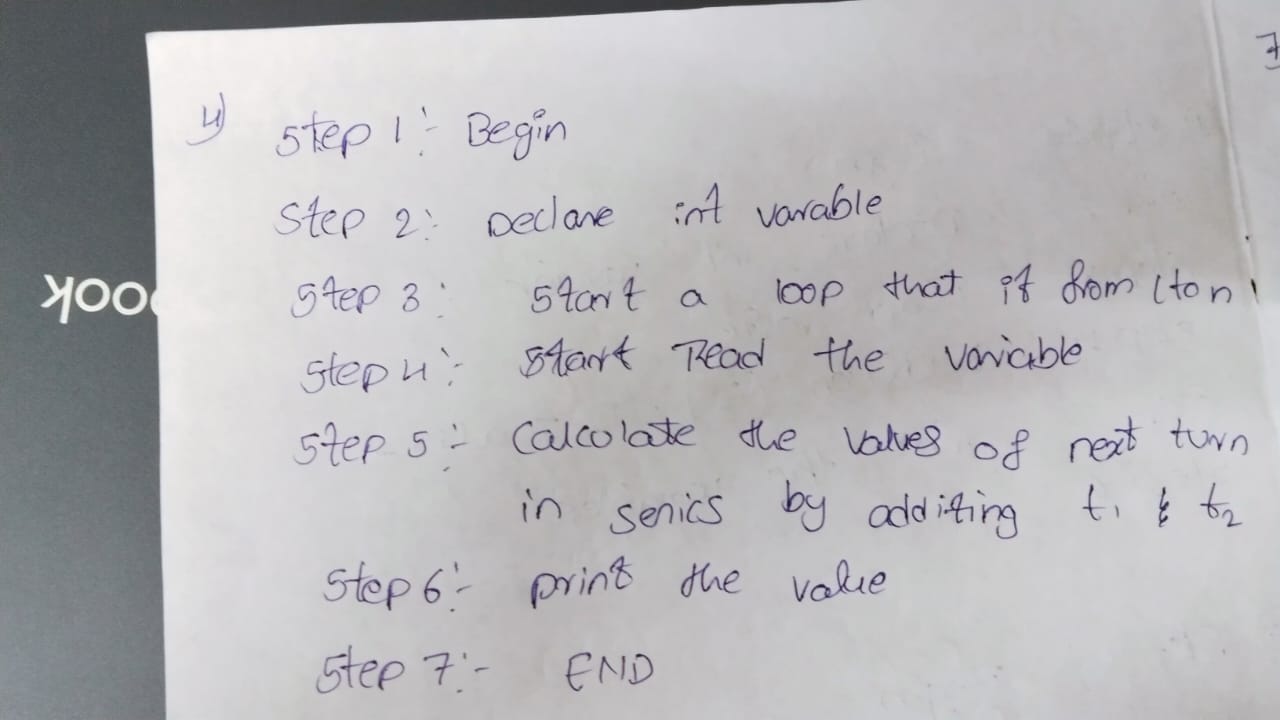 4) Step 1:- Begin
Step 2:- Declare int varable
Step 3: Start a loop that if from 1 to n
Step 4:- Start Read the variable
Step 5:- Calcolate the values of next turn
in senics by additing t1 & t2
Step 6:- print the value
Step 7:- END
ook
7